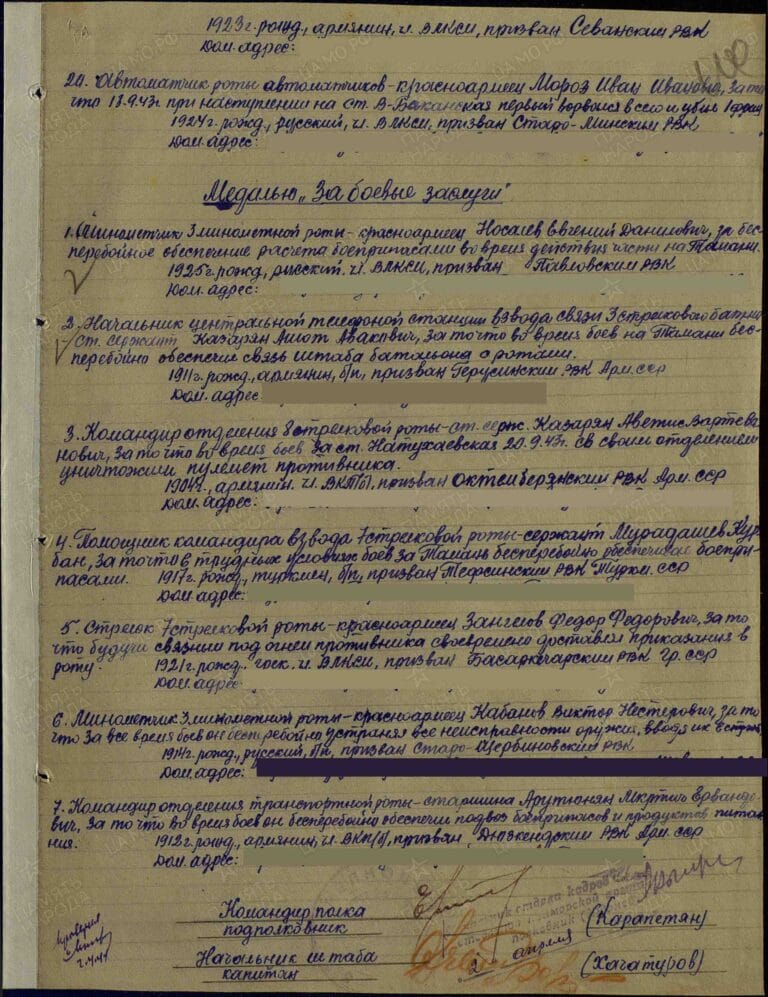 1923г. рожд., армянин, чл. ВЛКСМ, призван Севанский РВК
Дом. адрес:
24. Автоматчик роты автоматчиков - красноармеец Мороз Иван Иванович, за то
что 18.9.43г при наступлении на ст. В-Баканская первый ворвался в село и убил 1 фрица
1924г. рожд., русский, чл. ВЛКСМ, призван Старо-Минским РВК
Дом. адрес:
Медалью „За боевые заслуги"
1. Минометчик 3 минометной роты - красноармеец Носалев Евгений Данилович, за бес-
перебойное обеспечение расчета боеприпасами во время действия части на Тамани.
1925г. рожд., русский, чл. ВЛКСМ, призван Павловским РВК
Дом. адрес:
2. Начальник центральной телефоной станции взвода связи 3 стрелкового батльо
ст. сержант Казарян Ашот Авакович, за то что во время боев на Тамани бес-
перебойно обеспечил связь штаба батальона с ротами.
1911г. рожд., армянин, б/п, призван Герусинский РВК Арм. сср
Дом. адрес
3. Командир отделения 8 стрелковой роты - ст. серж. Казарян Аветис Вартева
нович, за то что во время боев за ст. Натухаевская 20.9.43г. св своим отделением
уничтожили пулемет противника.
1904г., армянин. чл. ВКП(б), призван Октемберянский РВК Арм. сср
Дом. адрес:
4. Помощник командира взвода 7 стрелковой роты - сержант Мурадашев Кур-
бан, за то что в трудных условиях боев за Тамань бесперебойно обеспечивал боепри-
пасами. 1917г. рожд., туркмен, б/п, призван Тефсинский РВК Туркм. сср
Дом. адрес:
5. Стрелок 7 стрелковой роты - красноармеец Зангелов Федор Федорович, за то
что будучи связным под огнем противника своевремено доставлял приказания в
роту. 1921г. рожд., грек. чл. ВЛКСМ, призван Басаркечарский РВК Гр. сср
Дом. адрес
6. Минометчик 3 минометной роты - красноармеец Кабанов Виктор Нестерович, за то
что за все время боев он бестребойно устранял все неисправности оружия, вводя их в строй,
1914г. рожд., русский, б/п, призван Старо-Щербиновский РВК
Дом. адрес:
7. Командир отделения транспортной роты - старшина Арутюнян Мкртич Ервандо-
вич, за то что во время боев он бесперебойно обеспечил подвоз боеприпасов и продуктов питa-
ния. 1912г. рожд., армянин, чл. ВКП(б), призван Дюзкендский РВК Арм. сср
Дом. адрес:
Командир полка
подполковник (Карапетян)
Начальник штаба
капитан 2 апреля (Хачатуров)